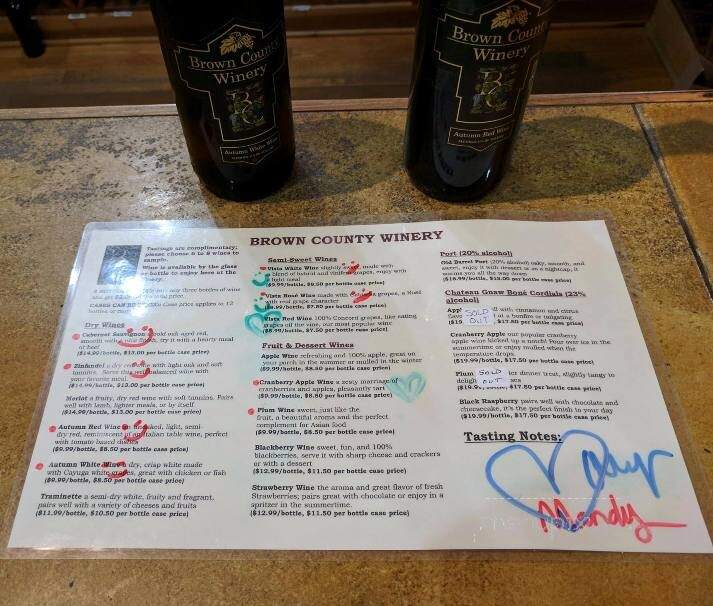 Brown County
Winery
BC
Autumn White Wine
Brown County
Winery
BC
Autumn Red Wine
BROWN COUNTY WINERY
Tastings are complimentary;
please choose 6 to 8 wines to
sample.
Wine is available by the glass
or bottle to enjoy here at the
any three bottles of wine
Case price applies to 12
Dry Wines
Cabernet Sauvignon oak aged red,
smooth with a finish, try it with a hearty meal
or beef
($14.99/bottle, $13.00 per bottle case price)
Zinfandel a dry wine with light oak and soft
tannins. Serve this well balanced wine with
your favorite meal.
($14.99/bottle, $13.00 per bottle case price)
Merlot a fruity, dry red wine with soft tannins. Pairs
well with lamb, lighter meals, or by itself
($14.99/bottle, $13.00 per bottle case price)
Autumn Red Wine oaked, light, semi-
dry red, reminiscent of an Italian table wine, perfect
with tomato based dishes
($9.99/bottle, $8.50 per bottle case price)
Autumn White Wine dry, crisp white made
with Cayuga white grapes, great with chicken or fish
($9.99/bottle, $8.50 per bottle case price)
Traminette a semi-dry white, fruity and fragrant,
pairs well with a variety of cheeses and fruits
($11.99/bottle, $10.50 per bottle case price)
Semi-Sweet Wines
Vista White Wine slightly sweet, made with
blend of hybrid and grapes, enjoy with
light meal
($9.99/bottle, $8.50 per bottle case price)
Vista Rosé Wine made with grapes, a Rosé
with real grape character
($8.99/bottle, $7.50 per bottle case price)
Vista Red Wine 100% Concord grapes, like eating
grapes off the vine, our most popular wine
($8.99/bottle, $7.50 per bottle case price)
Fruit & Dessert Wines
Apple Wine refreshing and 100% apple, great on
your porch in the summer or mulled in the winter
($9.99/bottle, $8.50 per bottle case price)
Cranberry Apple Wine a zesty marriage of
cranberries and apples, pleasantly tart
($9.99/bottle, $8.50 per bottle case price)
Plum Wine sweet, just like the
fruit, a beautiful aroma and the perfect
complement for Asian food
($9.99/bottle, $8.50 per bottle case price)
Blackberry Wine sweet, fun, and 100%
blackberries, serve it with sharp cheese and crackers
or with a dessert
($12.99/bottle, $11.50 per bottle case price)
Strawberry Wine the aroma and great flavor of fresh
Strawberries; pairs great with chocolate or enjoy in a
spritzer in the summertime.
($12.99/bottle, $11.50 per bottle case price)
Port (20% alcohol)
Old Barrel Port (20% alcohol) oaky, smooth, and
sweet, enjoy it with dessert or as a nightcap, it
warms you all the way down
($16.99/bottle, $15.00 per bottle case price)
Chateau Gnaw Boné Cordials (23%
alcohol)
SOLD with cinnamon and citrus
OUT at a bonfire or tailgating
$17.50 per bottle case price)
Cranberry Apple our popular cranberry
apple wine kicked up a notch! Pour over ice in the
summertime or enjoy mulled when the
temperature drops.
($19.99/bottle, $17.50 per bottle case price)
Plum SOLD dinner treat, slightly tangy to
OUT
$17.50 per bottle case price)
Black Raspberry pairs well with chocolate and
cheesecake, it's the perfect finish to your day
($19.99/bottle, $17.50 per bottle case price)
Tasting Notes:
Mandy